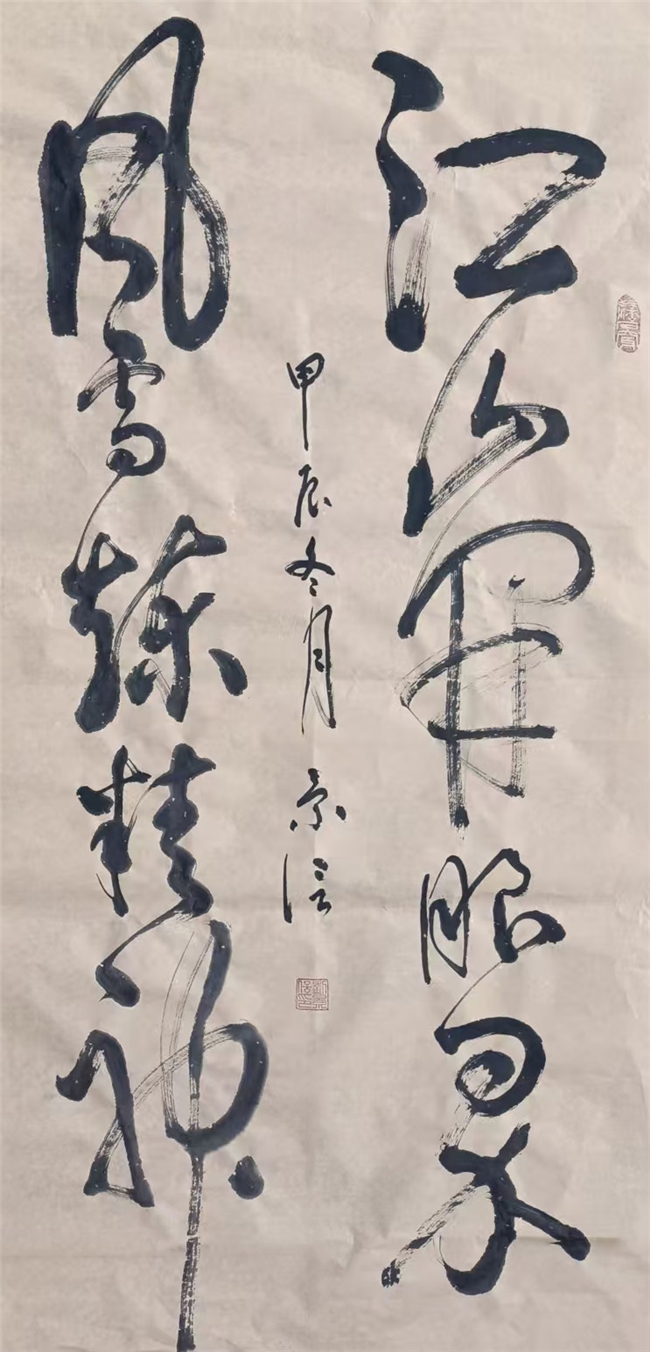 江山开眼界
风雪炼精神
甲辰冬月 景信